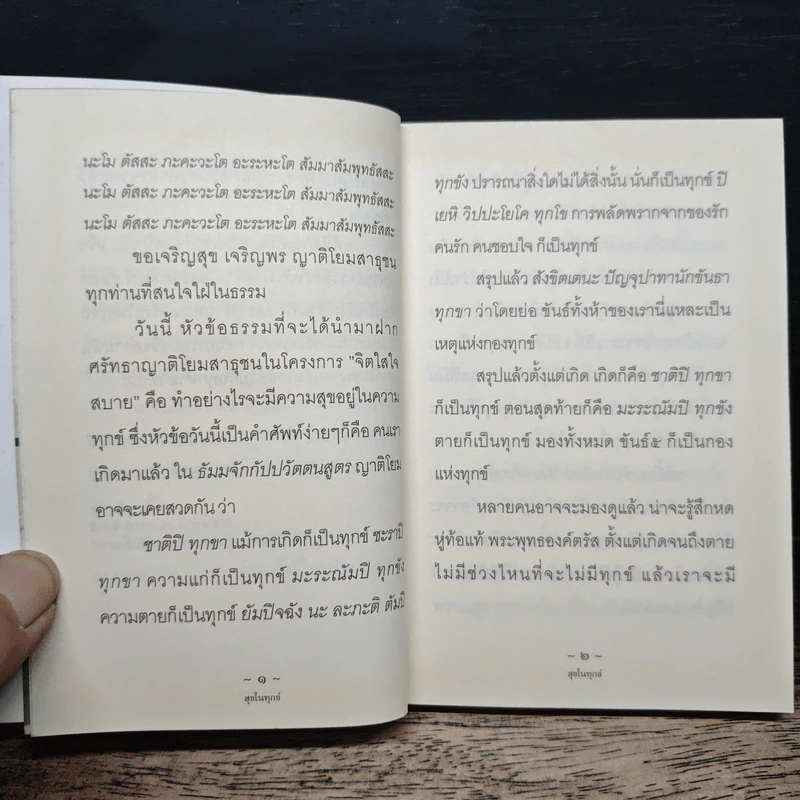 นะโม ตัสสะ ภะคะวะโต อะระหะโต สัมมาสัมพุทธัสสะ
นะโม ตัสสะ ภะคะวะโต อะระหะโต สัมมาสัมพุทธัสสะ
นะโม ตัสสะ ภะคะวะโต อะระหะโต สัมมาสัมพุทธัสสะ
ขอเจริญสุข เจริญพร ญาติโยมสาธุชน
ทุกท่านที่สนใจใฝ่ในธรรม
วันนี้ หัวข้อธรรมที่จะได้นำมาฝาก
ศรัทธาญาติโยมสาธุชนในโครงการ "จิตใสใจ
สบาย" คือ ทำอย่างไรจะมีความสุขอยู่ในความ
ทุกข์ ซึ่งหัวข้อวันนี้เป็นคำศัพท์ง่ายๆก็คือ คนเรา
เกิดมาแล้ว ใน ธัมมจักกัปปวัตตนสูตร ญาติโยม
อาจจะเคยสวดกัน ว่า
ชาติปิ ทุกขา แม้การเกิดก็เป็นทุกข์ ชะราปิ
ทุกขา ความแก่ก็เป็นทุกข์ มะระณัมปิ ทุกขัง
ความตายก็เป็นทุกข์ ยัมปิจฉัง นะ ละภะติ ตัมปิ
~ ๑ ~
สุขในทุกข์
ทุกขัง ปรารถนาสิ่งใดไม่ได้สิ่งนั้น นั่นก็เป็นทุกข์ ปิ
เยหิ วิปปะโยโค ทุกโข การพลัดพรากจากของรัก
คนรัก คนชอบใจ ก็เป็นทุกข์
สรุปแล้ว สังขิตเตนะ ปัญจุปาทานักขันธา
ทุกขา ว่าโดยย่อ ขันธ์ทั้งห้าของเรานี่แหละเป็น
เหตุแห่งกองทุกข์
สรุปแล้วตั้งแต่เกิด เกิดก็คือ ชาติปิ ทุกขา
ก็เป็นทุกข์ ตอนสุดท้ายก็คือ มะระณัมปิ ทุกขัง
ตายก็เป็นทุกข์ มองทั้งหมด ขันธ์๕ ก็เป็นกอง
แห่งทุกข์
หลายคนอาจจะมองดูแล้ว น่าจะรู้สึกหด
หู่ท้อแท้ พระพุทธองค์ตรัส ตั้งแต่เกิดจนถึงตาย
ไม่มีช่วงไหนที่จะไม่มีทุกข์ แล้วเราจะมี
~ ๒ ~
สุขในทุกข์